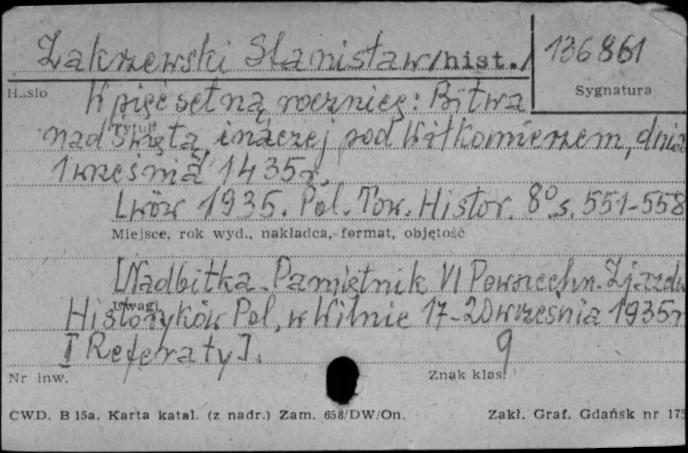 Zakrzewski Stanisław /hist./ 136861
Hasło Sygnatura
W pięćsetną rocznicę: Bitwa
Tytuł
nad Świętą, inaczej pod Wiłkomierzem, dnia
1 września 1435r.
Lwów 1935. Pol. Tow. Histor. 8° s. 551-558
Miejsce, rok wyd., nakładca, format, objętość
[Nadbitka. Pamiętnik VI Powszechn. Zjazdu
Uwagi
Historyków Pol. w Wilnie 17-20 września 1935r
I Referaty].
9
Nr inw. Znak klas.
CWD. B 15a. Karta katal. (z nadr.) Zam. 658/DW/On. Zakł. Graf. Gdańsk nr 173